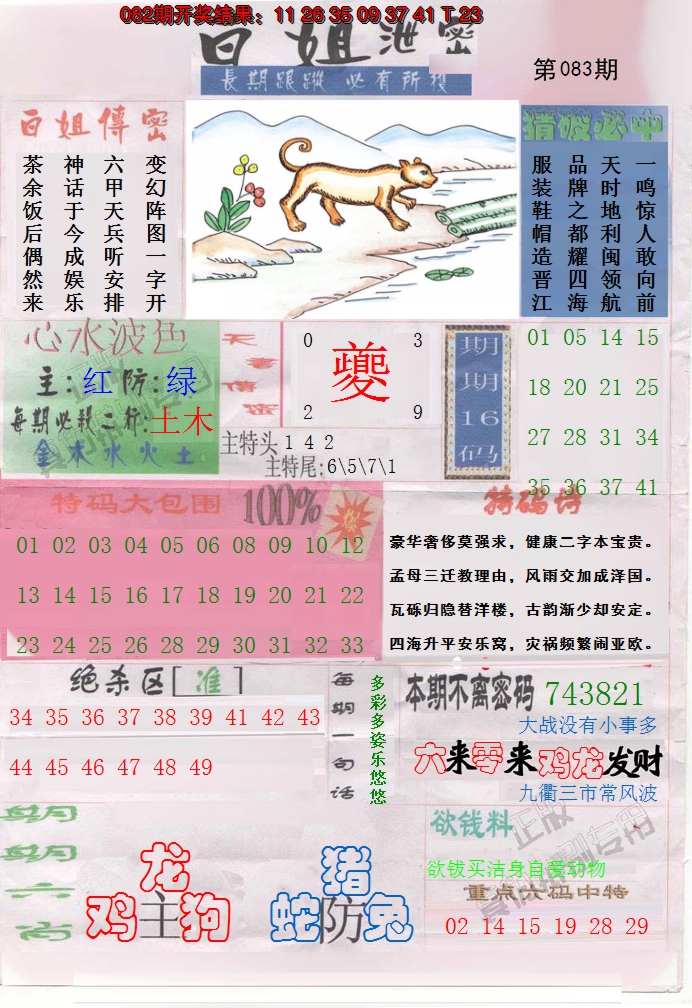 082期开奖结果：11 26 35 09 37 41 T 23
白姐泄密
第083期
長期跟蹤 必有所獲
白姐傳密
变幻阵图一字开
六甲天兵听安排
神话于今成娱乐
茶余饭后偶然来
猜波必中
一鸣惊人敢向前
天时地利闽领航
品牌之都耀四海
服装鞋帽造晋江
心水波色
主：红 防：绿
每期必殺二行：土木
金木水火土
0 3
夔
2 9
主特头 1 4 2
主特尾: 6\5\7\1
期期16码
01 05 14 15
18 20 21 25
27 28 31 34
35 36 37 41
特码大包围 100%
01 02 03 04 05 06 08 09 10 12
13 14 15 16 17 18 19 20 21 22
23 24 25 26 28 29 30 31 32 33
特码诗
豪华奢侈莫强求，健康二字本宝贵。
孟母三迁教理由，风雨交加成泽国。
瓦砾归隐替洋楼，古韵渐少却安定。
四海升平安乐窝，灾祸频繁闹亚欧。
绝杀区[准]
34 35 36 37 38 39 41 42 43
44 45 46 47 48 49
每期一句话
多彩多姿乐悠悠
本期不离密码 743821
大战没有小事多
六来零来鸡龙发财
九衢三市常风波
每期
每期
六
肖
龙
鸡主狗
猪
蛇防兔
欲钱料
欲钹买洁身自爱动物
重点六码中特
02 14 15 19 28 29